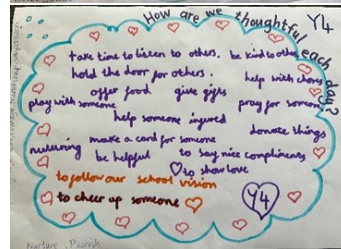 How are we thoughtful each day?
Y4
take time to listen to others. be kind to others
hold the door for others. help with chores
offer food give gifts
play with someone pray for someone
help someone injured
donate things
make a card for someone
nurturing be helpful to say nice compliments
to show love
to follow our school vision
to cheer up someone
Y4
Nurture